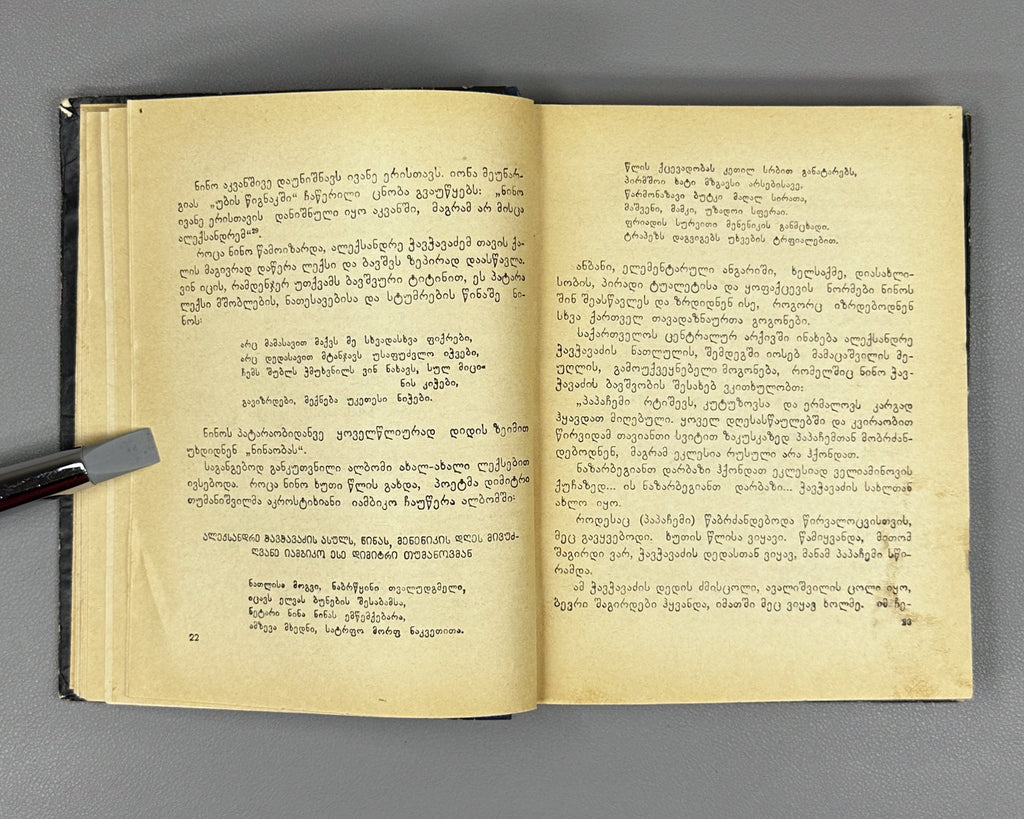 ნინო აკვანშივე დაუნიშნავს ივანე ერისთავს. იონა მეუნარ-
გიას „უბის წიგნაკში“ ჩაწერილი ცნობა გვაუწყებს: „ნინო
ივანე ერისთავის დანიშნული იყო აკვანში, მაგრამ არ მისცა
ალექსანდრემ“²⁹.
როცა ნინო წამოიზარდა, ალექსანდრე ჭავჭავაძემ თავის ქა-
ლის მაგივრად დაწერა ლექსი და ბავშვს ზეპირად დაასწავლა.
ვინ იცის, რამდენჯერ უთქვამს ბავშვური ტიტინით, ეს პატარა
ლექსი მშობლების, ნათესავებისა და სტუმრების წინაშე ნი-
ნოს:
არც მამასავით მაქვს მე სხვადასხვა ფიქრები,
არც დედასავით მტანჯავს უსაფუძვლო იჭვები,
ჩემს შუბლს ჰმუხვნილს ვინ ნახავს, სულ მიცი-
ნის კიჭები,
გავიზრდები, მექნება უკეთესი ნიჭები.
ნინოს პატარაობიდანვე ყოველწლიურად დიდის ზეიმით
უხდიდნენ „ნინაობას“.
საგანგებოდ განკუთვნილი ალბომი ახალ-ახალი ლექსებით
ივსებოდა. როცა ნინო ხუთი წლის გახდა, პოეტმა დიმიტრი
თუმანიშვილმა აკროსტიხიანი იამბიკო ჩაუწერა ალბომში:
ალექსანდრე ჭავჭავაძის ასულს, ნინას, მენენიკის დღეს მივუძ-
ღვანე იამბიკო ესე დიმიტრი თუმანოვმან
ნათლისა მოგვი, ნაბრწყინი თვალუდგმელი,
იცავს ელვას ბუნების შესაბამსა,
ნეტარი ნინა ნინას ემწემქებარა,
ამზევა მხედნი, სატრფო მორფ ნაკვეთითა.
22
წლის ქცევადობას კეთილ სრბით განატარებს,
პირმშოი ხატი მზგავსი არსებისავე,
წარმონაზავი ბუტკი მაღალ სირათა,
მაშვენი, მამკი, უზადოი სფერაი.
ფრიადის სურვითი მენენიკის განმცხადი.
ტრაპეზს დაგვიგებს უხვების ტრფიალებით.
ანბანი, ელემენტარული ანგარიში, ხელსაქმე, დიასახლი-
სობის, პირადი ტუალეტისა და ყოფაქცევის ნორმები ნინოს
შინ შეასწავლეს და ზრდიდნენ ისე, როგორც იზრდებოდნენ
სხვა ქართველ თავადაზნაურთა გოგონები.
საქართველოს ცენტრალურ არქივში ინახება ალექსანდრე
ჭავჭავაძის ნათლულის, შემდეგში იოსებ მამაცაშვილის მე-
უღლის, გამოუქვეყნებელი მოგონება, რომელშიც ნინო ჭავ-
ჭავაძის ბავშვობის შესახებ ვკითხულობთ:
„პაპაჩემი რტიშევს, კუტუზოვსა და ერმალოვს კარგად
ჰყავდათ მიღებული. ყოველ დღესასწაულებში და კვირაობით
წირვიდამ თავიანთი სვიტით ზაკუსკაზედ პაპაჩემთან მობრძან-
დებოდნენ, მაგრამ ეკლესია რუსული არა ჰქონდათ.
ნაზარბეგიანთ დარბაზი ჰქონდათ ეკლესიად ველიამინოვის
ქუჩაზედ... ის ნაზარბეგიანთ დარბაზი... ჭავჭავაძის სახლთან
ახლო იყო.
როდესაც (პაპაჩემი) წაბრძანდებოდა წირვალოცვისთვის,
მეც გავყვებოდი. ხუთის წლისა ვიყავი. წამიყვანდა, მითომ
შაგირდი ვარ, ჭავჭავაძის დედასთან ვიყავ, მანამ პაპაჩემი სწი-
რამდა.
ამ ჭავჭავაძის დედის ძმისცოლი, ავალიშვილის ცოლი იყო,
ბევრი შაგირდები ჰყვანდა, იმათში მეც ვიყავ ხოლმე. იმ ჩე-
23